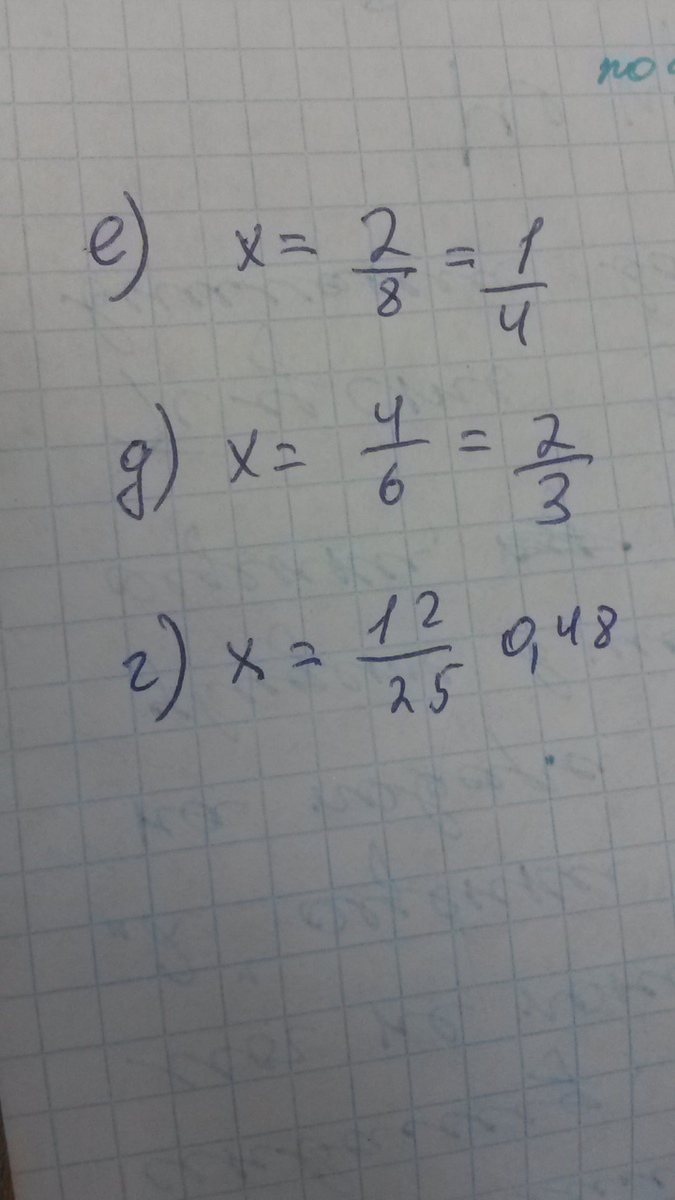 по
е) x = 2/8 = 1/4
д) x = 4/6 = 2/3
г) x = 12/25 0,48